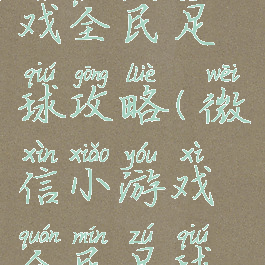 戏全民足
qiú gōng lüè wēi
球攻略(微
xìn xiǎo yóu xì
信小游戏
quán mín zú qiú
全民足球